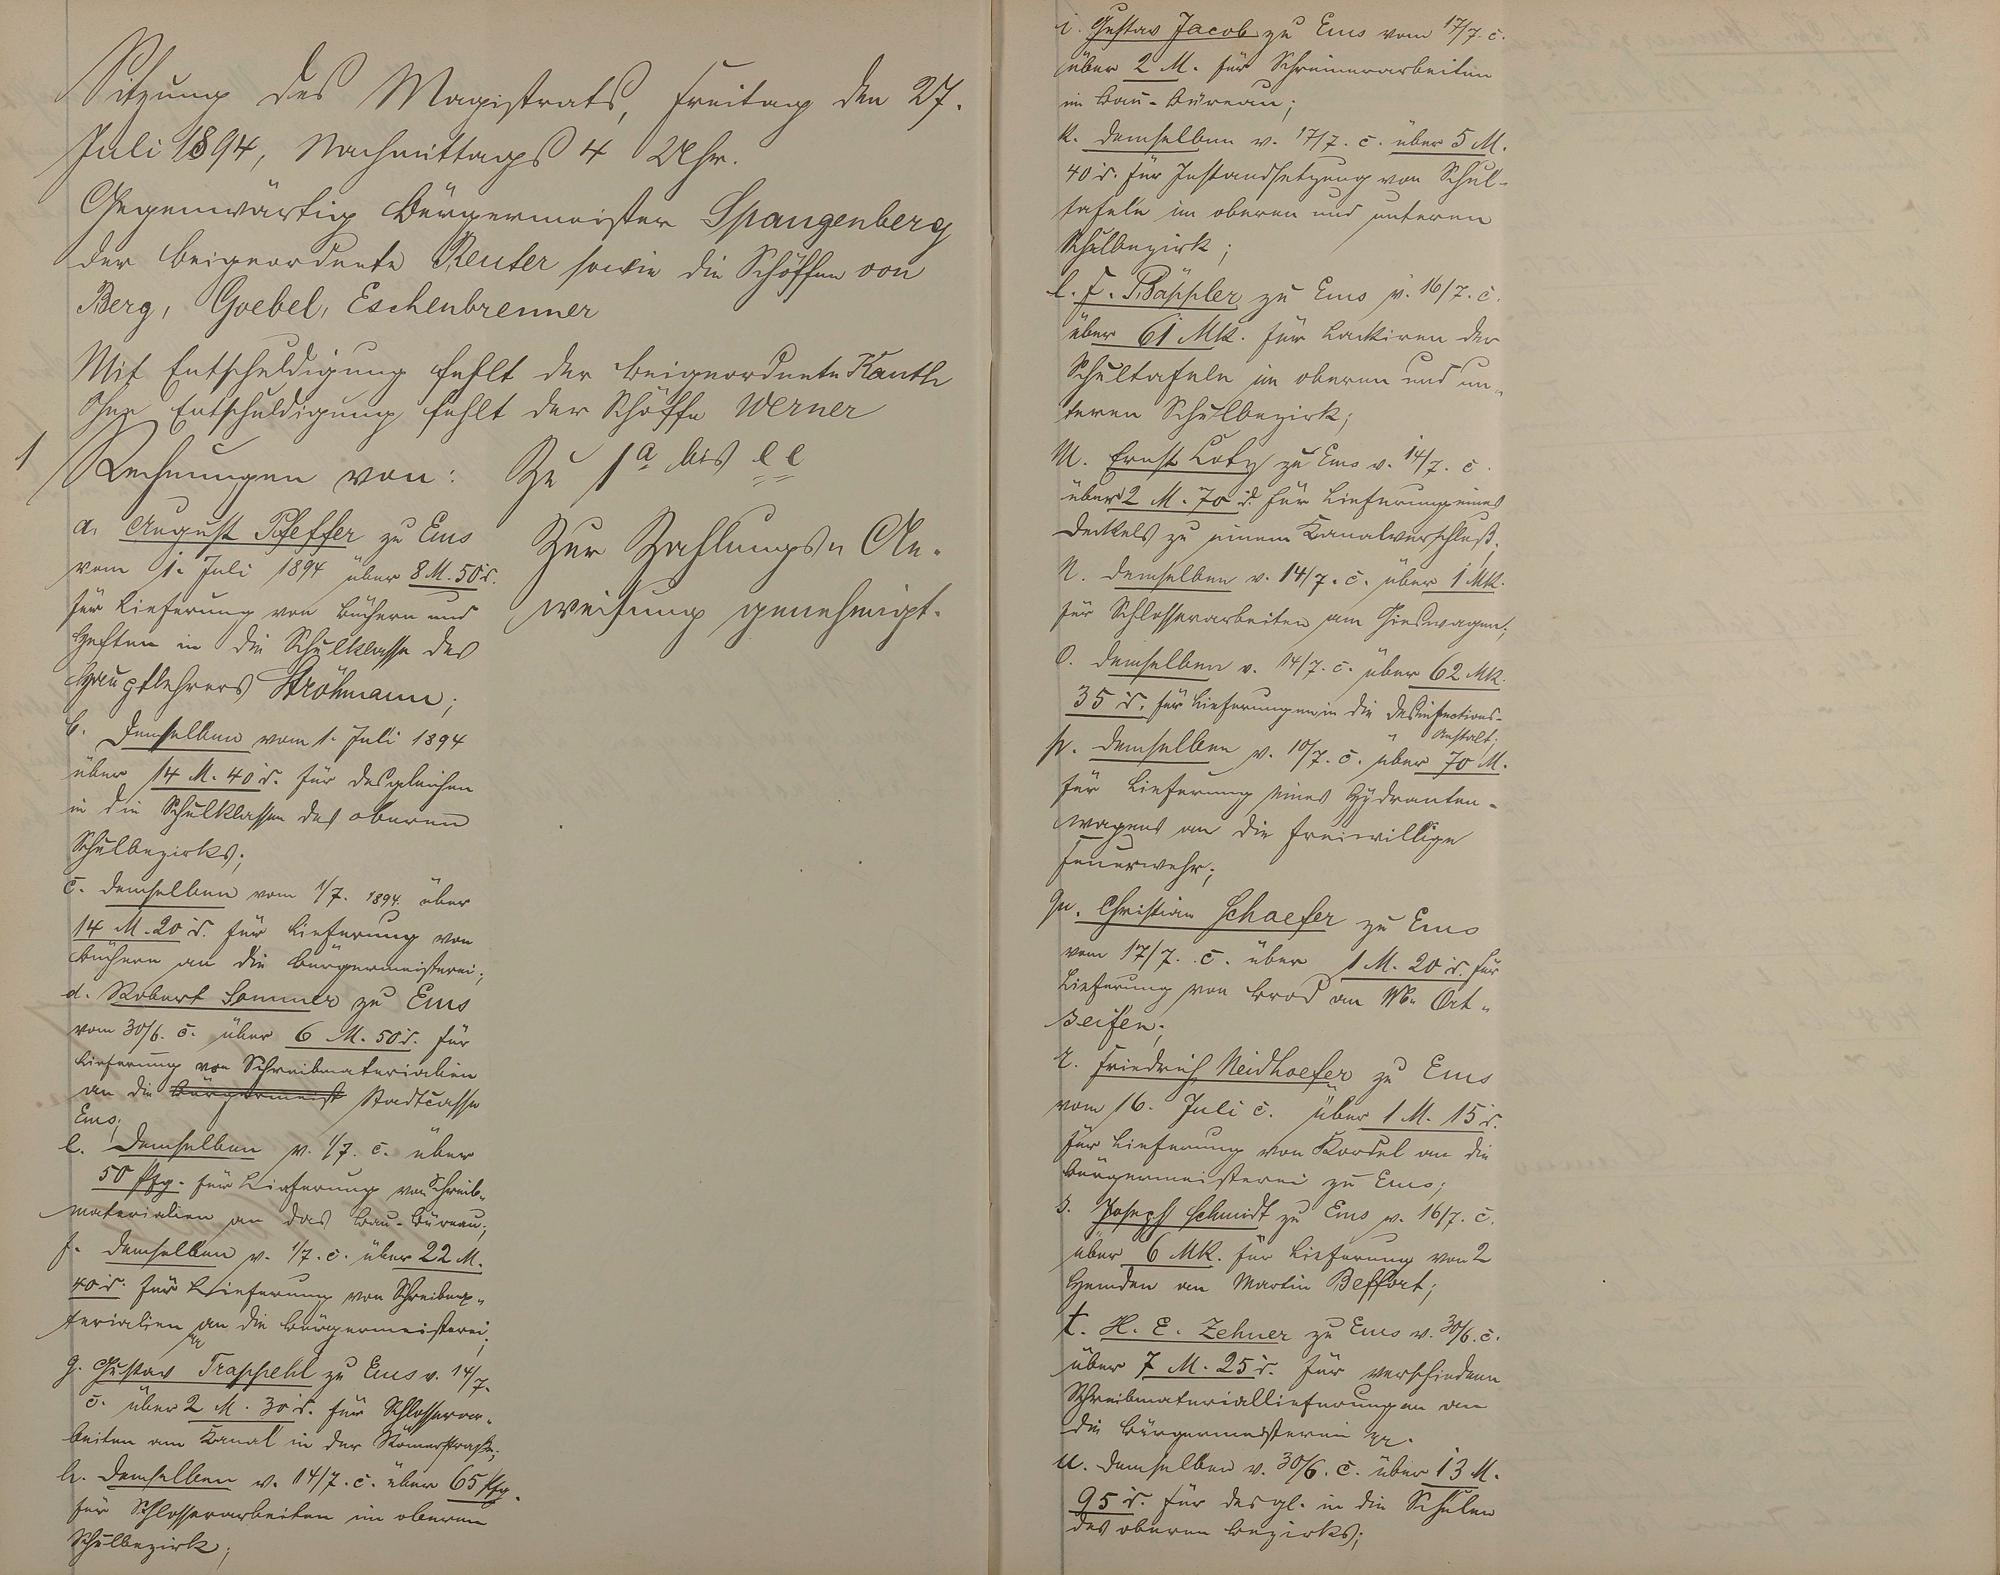 Sitzung des Magistrats, Freitag den 27.
Juli 1894, Nachmittags 4 Uhr.
Gegenwärtig Bürgermeister Spangenberg
der Beigeordnete Reuter sowie die Schöffen von
Berg, Goebel, Eschenbrenner
Mit Entschuldigung fehlt der Beigeordnete Kauth
Ohne Entschuldigung fehlt der Schöffe Werner
1 Rechnungen von:
a. August Pfeffer zu Ems
vom 1. Juli 1894 über 8 M. 50 d.
für Lieferung von Büchern und
Heften in die Schulklasse des
Hauptlehrers Ströhmann;
b. Demselben vom 1. Juli 1894
über 14 M. 40 d. für desgleichen
in die Schulklassen des oberen
Schulbezirks;
c. demselben vom 1/7. 1894 über
14 M. 20 d. für Lieferung von
Büchern an die Bürgermeisterei;
d. Robert Sommer zu Ems
vom 30/6. c. über 6 M. 50 d. für
Lieferung von Schreibmaterialien
an die Bürgermeist Stadtcasse
Ems;
e. Demselben v. 1/7. c. über
50 Pfg. für Lieferung von Schreib-
materialien an das Bau-Büreau;
f. demselben v. 1/7. c. über 22 M.
40 d. für Lieferung von Schreibma-
terialien an die Bürgermeisterei;
g. Gustav Trappehl zu Ems v. 14/7.
c. über 2 M. 30 d. für Schlosserar-
beiten am Kanal in der Römerstraße;
h. demselben v. 14/7. c. über 65 Pfg.
für Schlosserarbeiten im oberen
Schulbezirk;
Zu 1 a bis ll
Zur Zahlungs-An-
weisung genehmigt.
i. Gustav Jacob zu Ems vom 17/7. c.
über 2 M. für Schreinerarbeiten
im Bau-Büreau;
k. demselben v. 17/7. c. über 5 M.
40 d. für Instandsetzung von Schul-
tafeln im oberen und unteren
Schulbezirk;
l. F. Bäppler zu Ems v. 16/7. c.
über 61 Mk. für Lackiren der
Schultafeln im oberen und un-
teren Schulbezirk;
m. Ernst Lotz zu Ems v. 14/7. c.
über 2 M. 70 d. für Lieferung eines
Deckels zu einem Kanalverschluß;
n. demselben v. 14/7. c. über 1 Mk.
für Schlosserarbeiten am Gieswagen;
o. demselben v. 14/7. c. über 62 Mk.
35 d. für Lieferungen in die Desinfections-
Anstalt;
p. demselben v. 10/7. c. über 70 M.
für Lieferung eines Hydranten-
wagens an die freiwillige
Feuerwehr;
qu. Christian Schaefer zu Ems
vom 17/7. c. über 1 M. 20 d. für
Lieferung von Brod an Ww. Ort-
seifen;
r. Friedrich Neidhoefer zu Ems
vom 16. Juli c. über 1 M. 15 d.
für Lieferung von Kordel an die
Bürgermeisterei zu Ems;
s. Joseph Schmidt zu Ems v. 16/7. c.
über 6 Mk. für Lieferung von 2
Hemden an Martin Beffort;
t. H. E. Zehner zu Ems v. 30/6. c.
über 7 M. 25 d. für verschiedene
Schreibmateriallieferungen an
die Bürgermeisterei
u. demselben v. 30/6. c. über 13 M.
95 d. für desgl. in die Schulen
des oberen Bezirks;